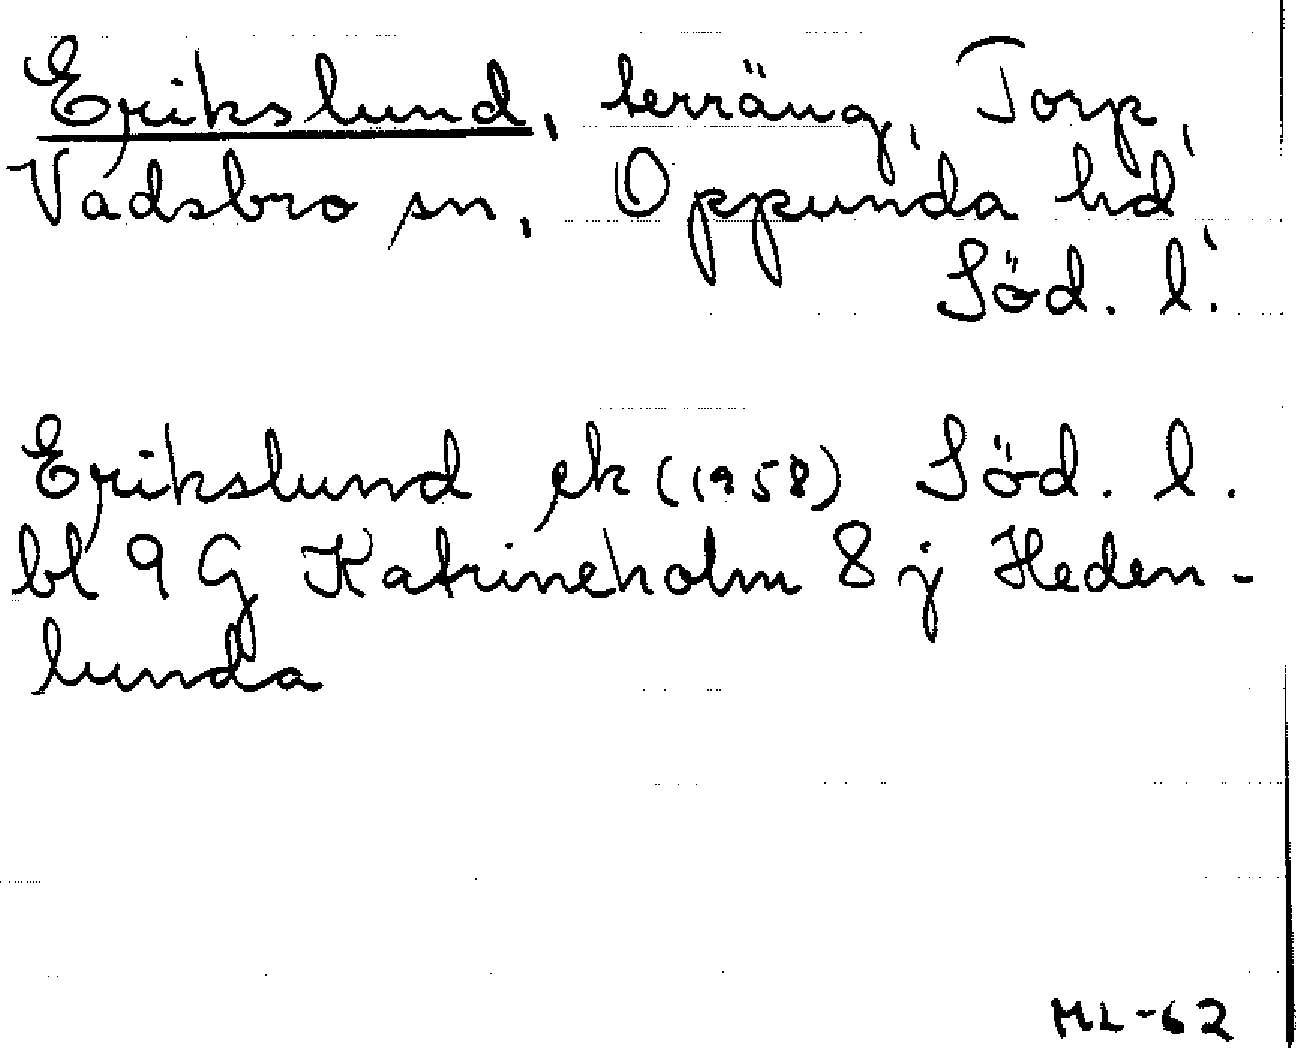 Erikslund, terräng, Torp,
Vadsbro sn, Oppunda hd,
Söd. l.
Erikslund ek (1958) Söd. l.
bl 9 G Katrineholm 8 j Heden-
lunda
ML-62